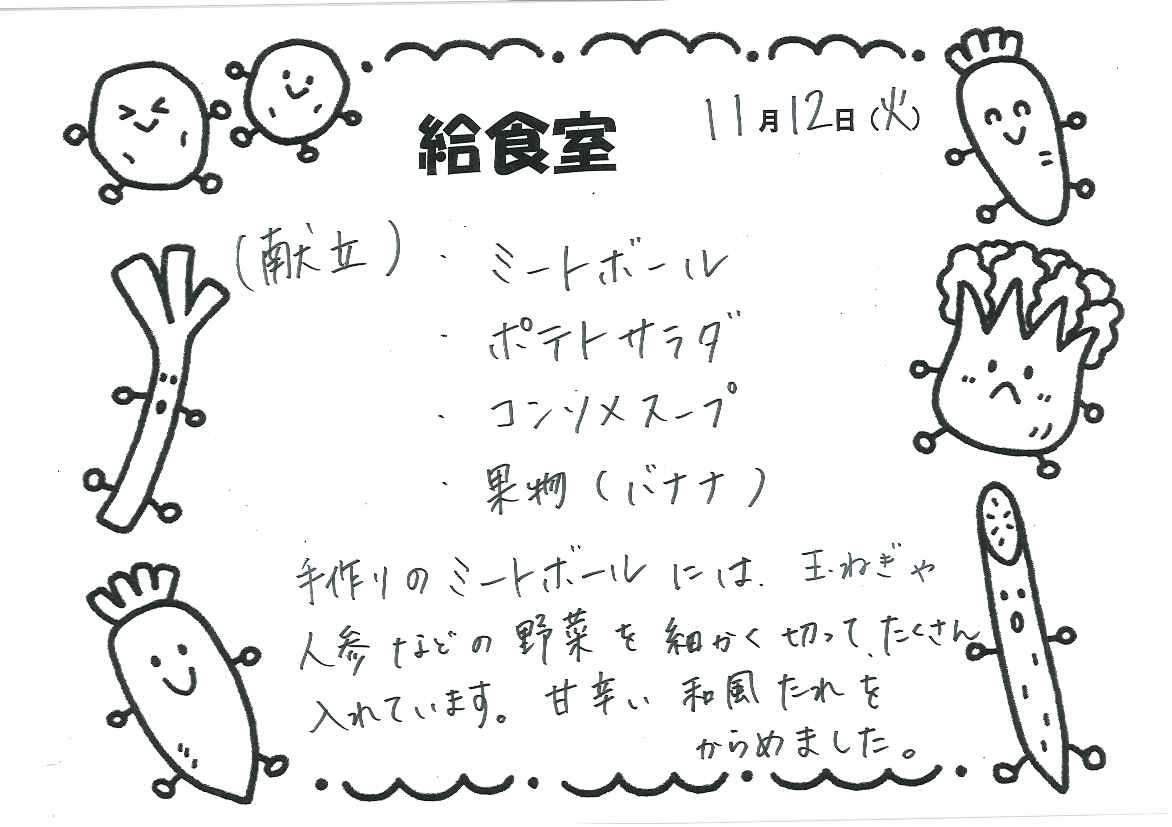 給食室
11月12日(火)
(献立)・ミートボール
・ポテトサラダ
・コンソメスープ
・果物(バナナ)
手作りのミートボールには、玉ねぎや
人参などの野菜を細かく切って、たくさん
入れています。甘辛い和風たれを
からめました。